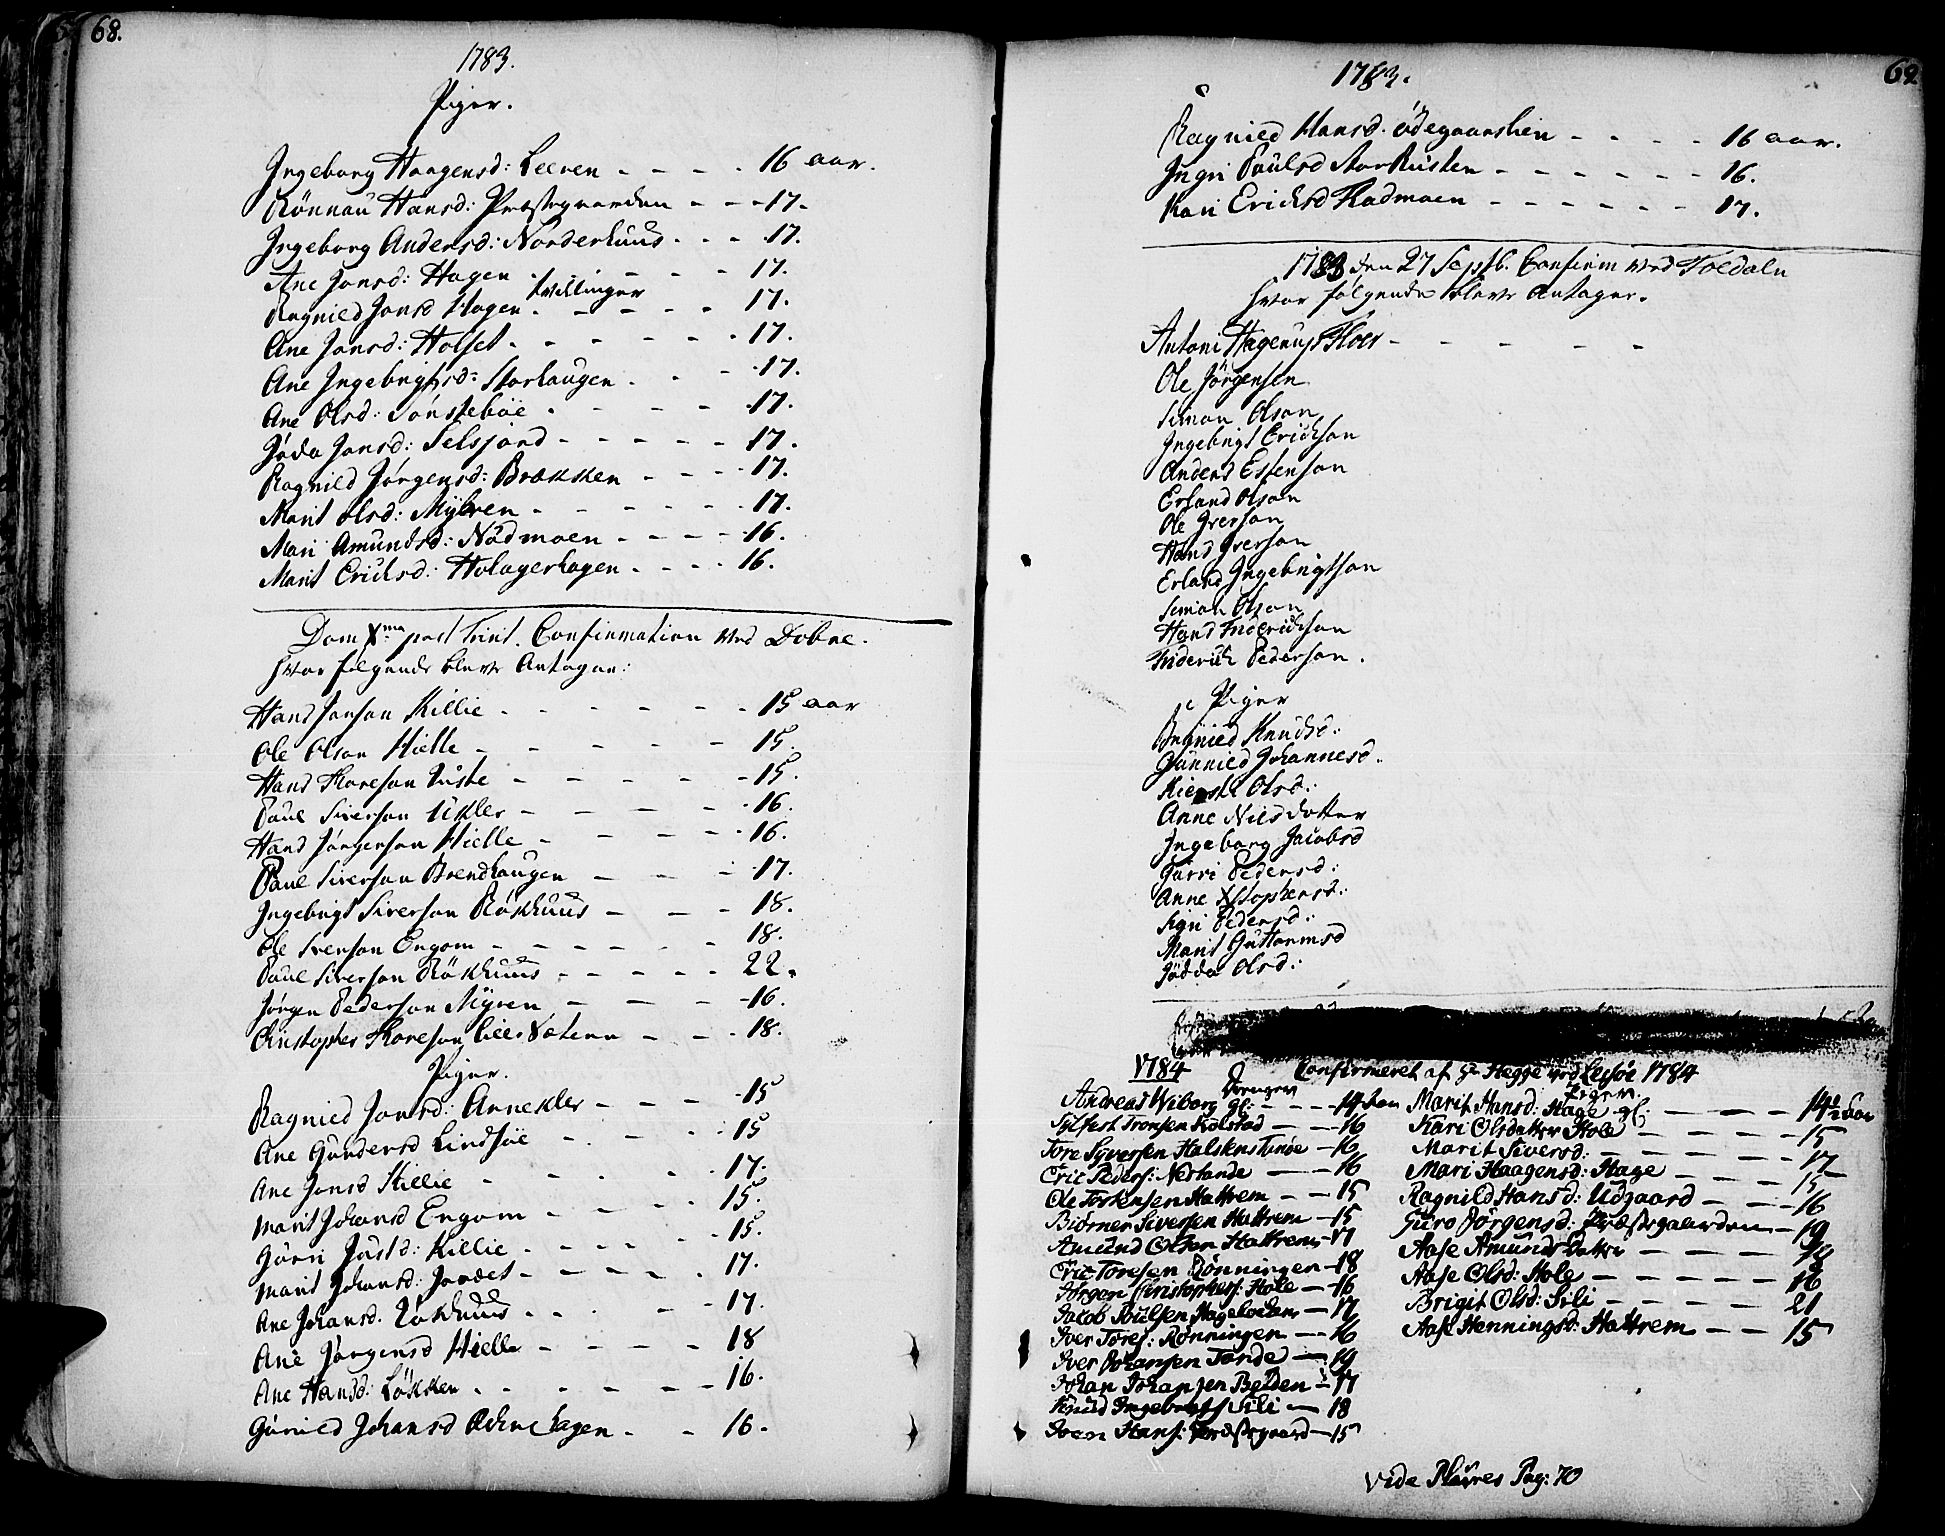 68.
1783.
Piger.
Ingeborg Haagensd: Leeren - - - - 16 aar.
Rönnau Hansd: Præstegaarden - - - 17.
Ingeborg Andersd: Norderhuus - - - 17.
Ane Jonsd: Hagen - - - - 17.
Ragnild Jonsd Hagen tvillinger - - - - 17.
Ane Jonsd: Holset - - - - - 17.
Ane Ingebrigtsd: Storhaugen - - - 17.
Ane Olsd: Tönsteböe - - - - 17.
Jöda Jonsd: Selsjord - - - - - 17.
Ragnild Jörgensd: Brækken - - - 17.
Marit Olsd: Myhren - - - - - 17.
Mari Amundsd: Nordmoen - - - - 16.
Marit Ericksd: Holagerhagen - - - - 16.
Dom Xma post Trinit. Confirmation ved Dobre.
hvor fölgende bleve Antagne:
Hans Jonson Killie - - - - - - 15 aar
Ole Olson Hielle - - - - - 15.
Hans Thoreson - - - - - 15.
Paul Siverson Ukler - - - - - 16.
Hans Jörgenson Hielle - - - - - 16.
Paul Siverson Brendhaugen - - - - 17.
Ingebrigt Siverson Rökhuus - - - 18.
Ole Iverson Engom - - - - - - 18.
Paul Siverson Rökhuus - - - - - 22.
Jörgen Pederson Myren - - - - 16.
Christopher Thoreson - - - 18.
Piger.
Ragnild Jonsd: - - - - 15
Ane Gundersd Lindsöe - - - - 15
Ane Jonsd Killie - - - - - 17.
Marit Johansd Engom - - - - 15.
Görri Jonsd: Killie - - - - - 15.
Marit Johansd: Jordet - - - - - 17.
Ane Johansd. Rökhuus - - - - - 17.
Ane Jörgensd Hielle - - - - - 18
Ane Hansd: Lökken - - - - - - 16.
Görnild Johansd - - 16.
69
1783.
Ragnild Hansd. Ödegaarslien - - - - 16 aar.
Ingri Paulsd Storrusten - - - - - - 16.
Kari Ericksd Nadmoen - - - - - - 17.
1783 den 27 Septb. Confirm ved Foldaln
hvor fölgende bleve Antagen.
Antoni Hagerup Floer - - - - - -
Ole Jörgensen
Simon Olson
Ingebrigt Erickson
Anders Estenson
Erland Olson
Ole Iverson
Hans Iverson
Erland Ingebrigtson
Simon Olson
Hans Friderickson
Friderick Pederson.
Piger
Ragnild Knudsd:
Gunnild Johannesd.
Kiersti Olsd:
Anne Nilsdotter
Ingeborg Jacobsd
Görri Pedersd:
Anne Xstophersd:
Sigri Pedersd:
Marit Guttormsd
Jödda Olsd:
1784 Confirmeret af Hr Hegge ved Lessöe 1784
Drenger
Andreas Wiborg gl: - - - 14 Aar
Sylfest Tronsen Kolstad - - 16
Tore Syversen - 16
Eric Peders: Nerlande - - 16
Ole Torstensen Hattrem - - 15
Biörner Siversen Hattrem - 15
Amund Olsen Hattrem - 17
Eric Toresen Rönningen - 18
Jörgen Christophers: Hole - 16
Jacob Poulsen - 17
Iver Tores: Rönningen - 16
Iver Johansen Tande - 19
Johan Johansen - 17
Knud Ingebrets Lili - 18
Hans: Præstegaard - 15
Piger
Marit Hansd: Hage gl: - - - 14½ Aar
Kari Olsdatter Hole - - - - 15
Marit Siversd: - - - - - 17
Mari Haagensd: Hage - - - 15
Ragnild Hansd: Udgaard - - 16
Guro Jörgensd: Præstegaarden - 19
Aase Amunds Datter - - - 18
Aase Olsd: Hole - - - - - 16
Brigit Olsd: Lili - - - - - 21
Aase Henningsd: Hattrem - - - 15
Vide Plures Pag: 70